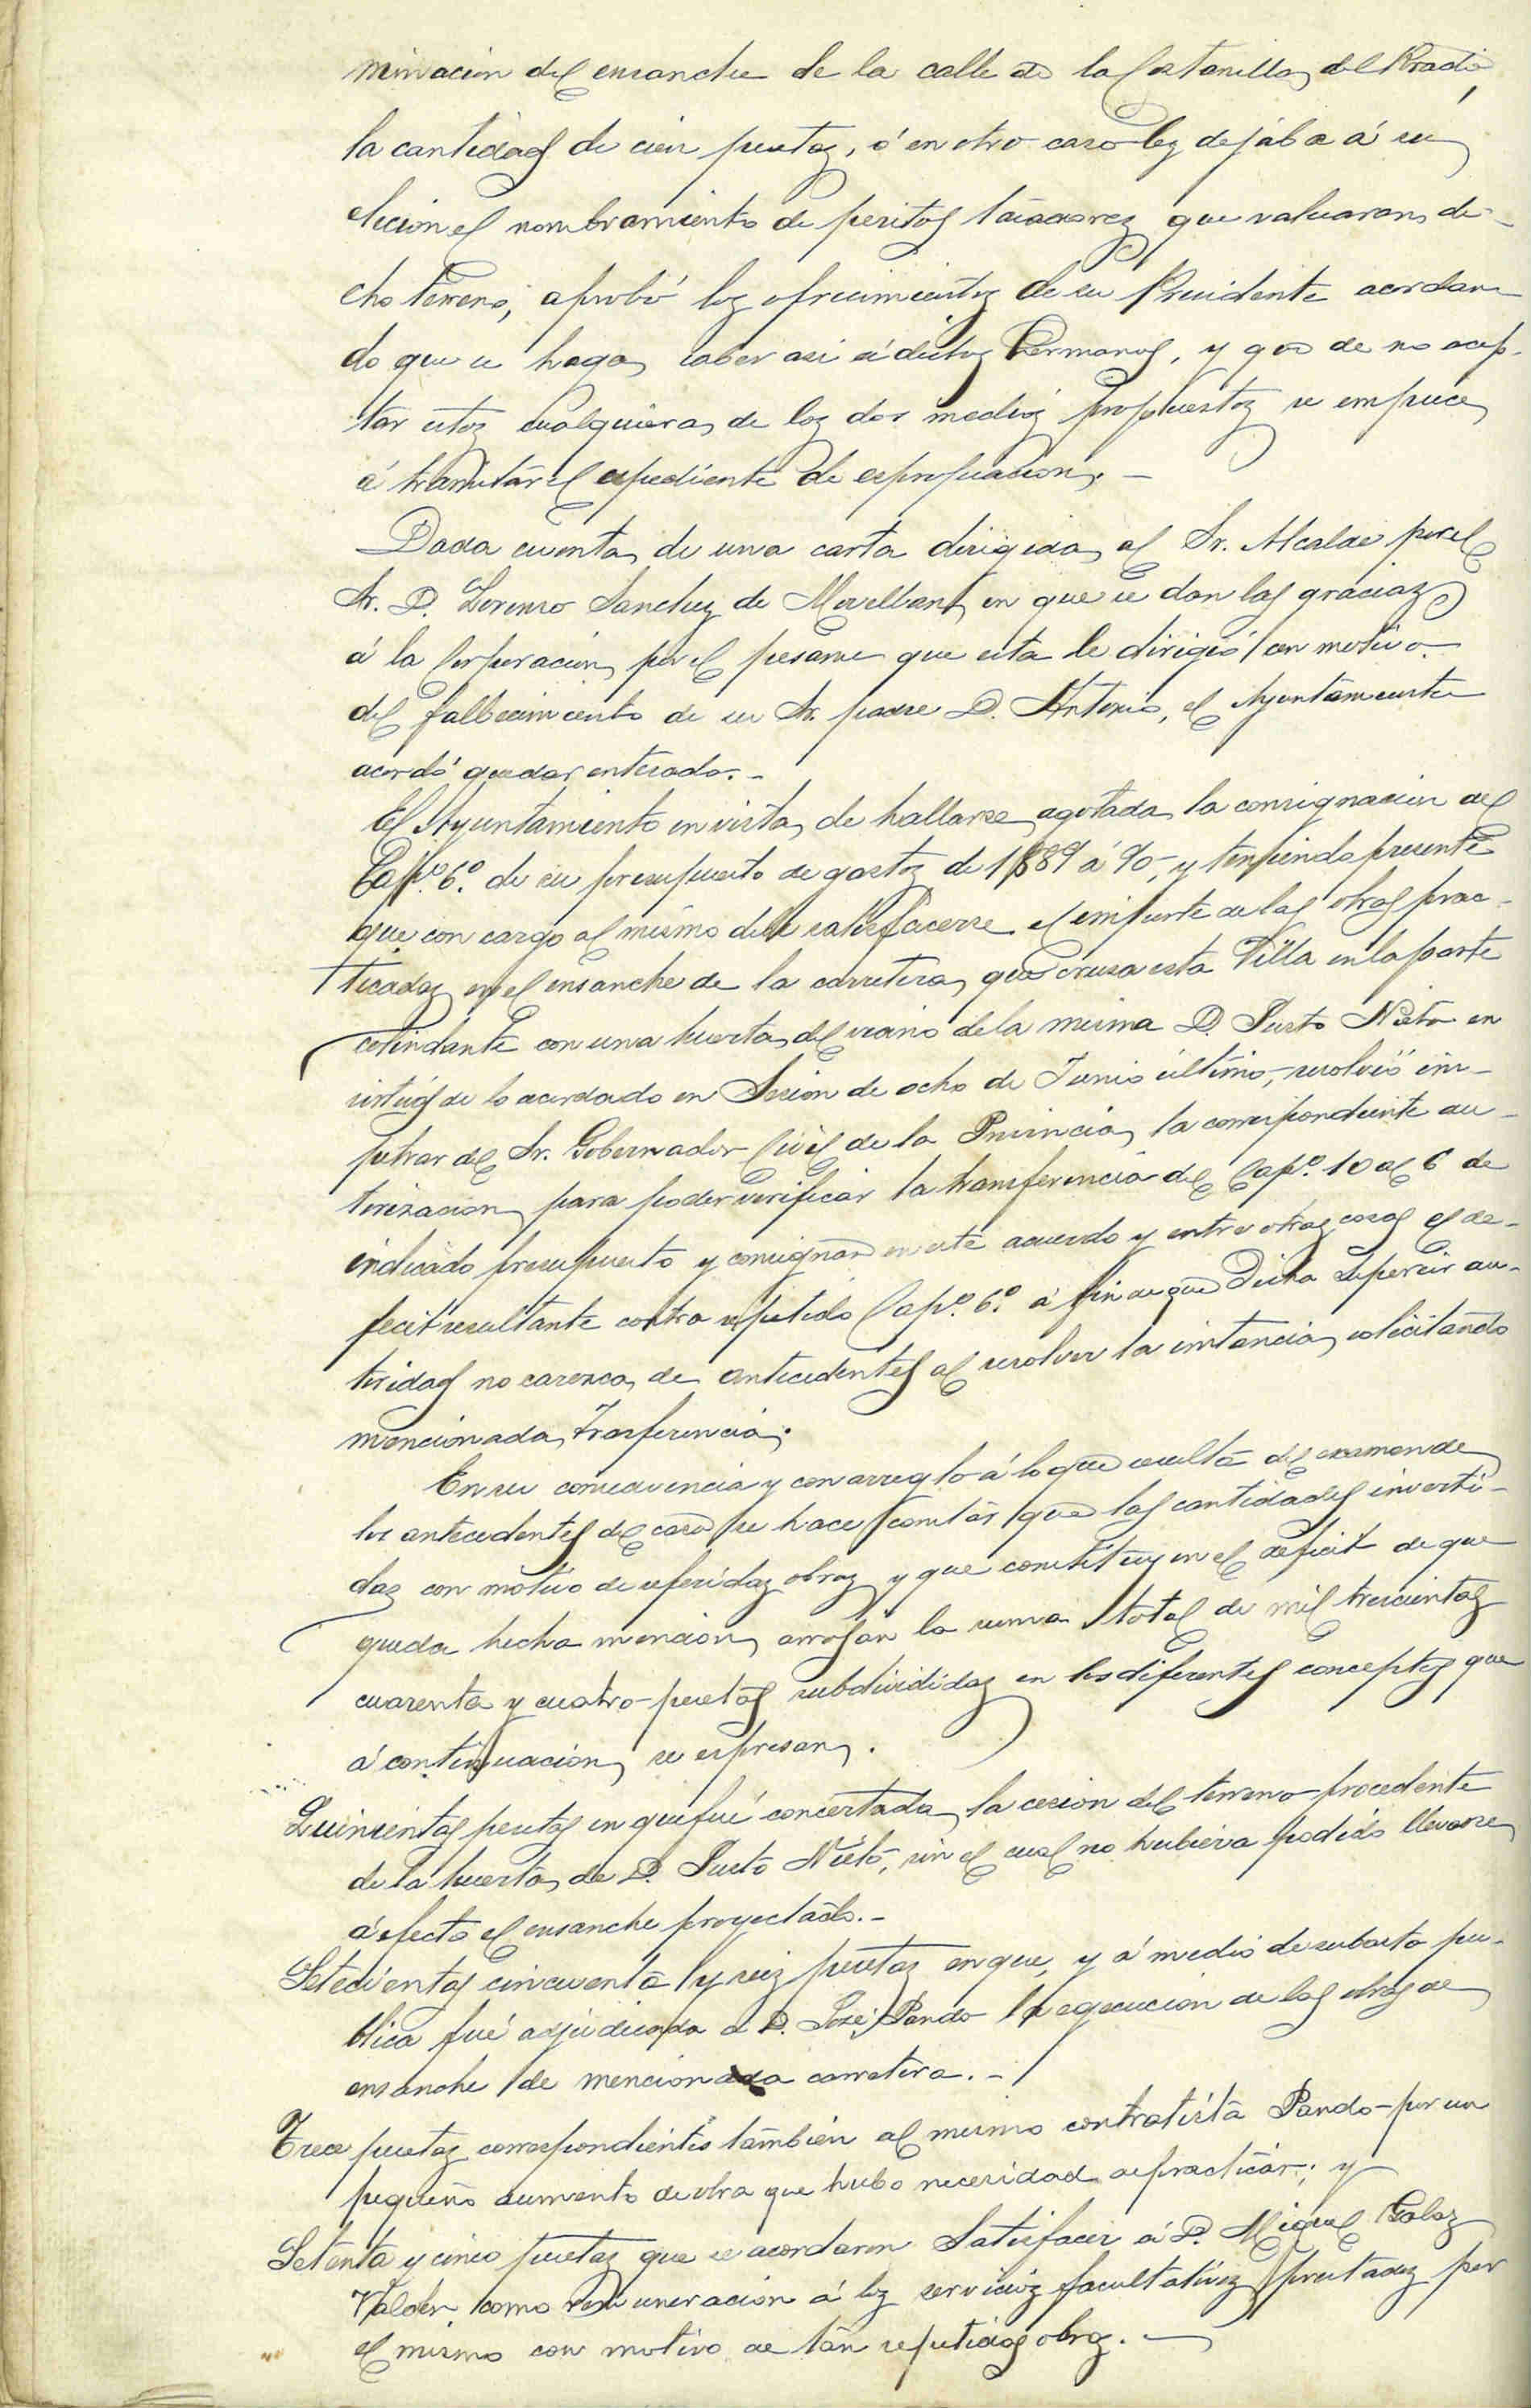 minación del ensanche de la calle de la Castanilla del Prado
la cantidad de cien pesetas, ó en otro caso les dejaba á su
elección el nombramiento de peritos tasadores que valuaran di-
cho terreno, aprobó los ofrecimientos de su Presidente acordan-
do que se haga saber asi á dichos hermanos, y que de no acep-
tar estos cualquiera de los dos medios propuestos se empiece
á tramitar el espediente de espropiacion. -
Dada cuenta de una carta dirigida al Sr. Alcalde por el
Sr. D. Lorenzo Sanchez de Movellan en que se dan las gracias
á la Corporacion por el pesame que esta le dirigió con motivo
del fallecimiento de su Sr. padre D. Antonio, el Ayuntamiento
acordó quedar enterado. -
El Ayuntamiento en vista de hallarse agotada la consignacion del
Capº. 6º. de su presupuesto de gastos de 1889 á 90, y teniendo presente
que con cargo al mismo debe satisfacerse el importe de las obras prac-
ticadas en el ensanche de la carretera que cruza esta Villa en la parte
colindante con una huerta del vecino de la misma D. Justo Nieto en
virtud de lo acordado en Sesion de ocho de Junio último, resolvió im-
petrar del Sr. Gobernador Civil de la Provincia la correspondiente au-
torizacion para poder verificar la transferencia del Capº. 10 al 6 de
indicado presupuesto y consignar en este acuerdo y entre otras cosas el de-
ficit resultante contra repetido Capº. 6º. á fin de que Dicha Superior au-
toridad no carezca de antecedentes al resolver la instancia solicitando
mencionada Trasferencia.
En su consecuencia y con arreglo á lo que resulta del examen de
los antecedentes del caso se hace constar que las cantidades inverti-
das con motivo de referidas obras y que constituyen el deficit de que
queda hecha mencion arrojan la suma total de mil trescientas
cuarenta y cuatro pesetas subdivididas en los diferentes conceptos que
á continuacion se espresan.
Quinientas pesetas en que fué concertada la cesion del terreno procedente
de la huerta de D. Justo Nieto, sin el cual no hubiera podido llevarse
á efecto el ensanche proyectado. -
Setecientas cincuenta y seis pesetas en que, y á medio de subasta pu-
blica fué adjudicada á D. José Pando la egecucion de las obras de
ensanche de mencionada carretera. -
Trece pesetas correspondientes también al mismo contratista Pando por un
pequeño aumento de obra que hubo necesidad de practicar; y
Setenta y cinco pesetas que se acordaron Satisfacer á D. Miguel Galaz
Valdér como remuneracion á los servicios facultativos prestados por
el mismo con motivo de tan repetidas obras. -